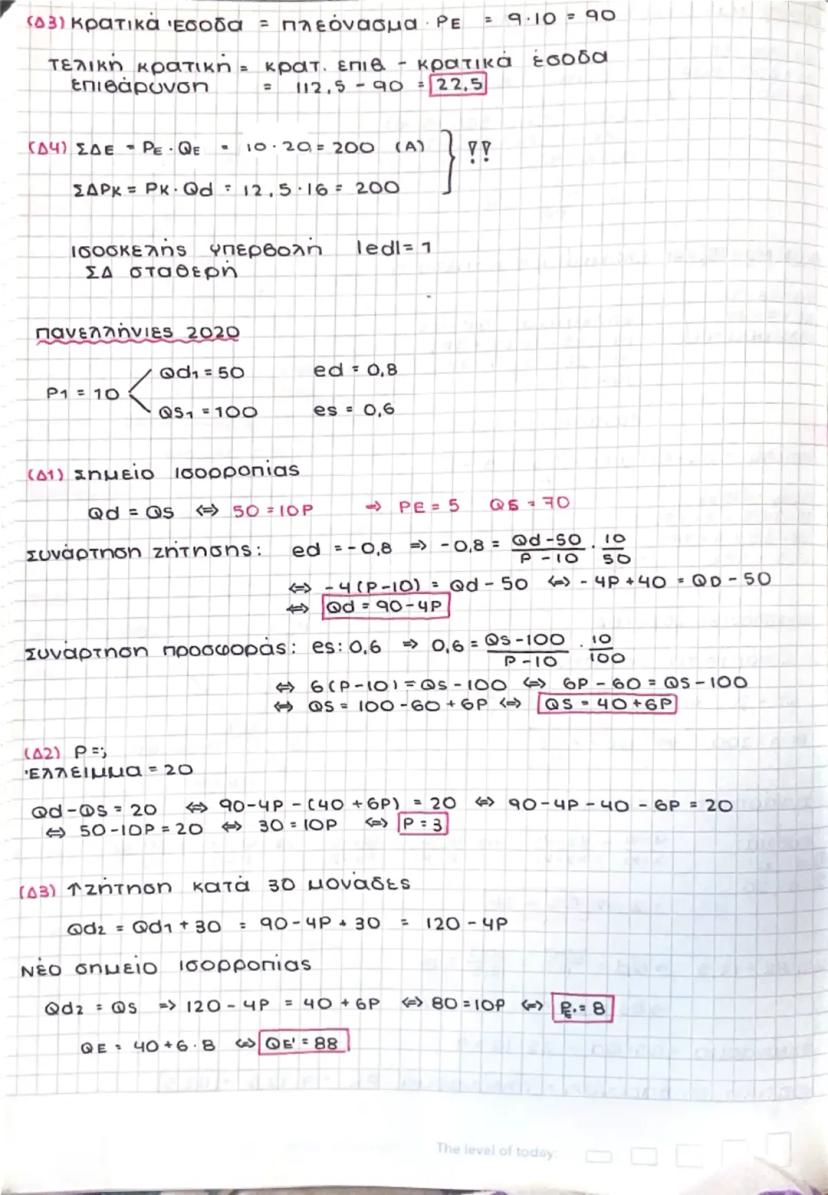 (Δ3) Κρατικά Έσοδα = πλεόνασμα · PE = 9·10 = 90
Τελική κρατική = κρατ. επιβ - κρατικά έσοδα
επιβάρυνση = 112,5 - 90 = 22,5
(Δ4) ΣΔΕ = PE · QE = 10 · 20 = 200 (A)
ΣΔPK = PK · Qd = 12,5 · 16 = 200
!!
Ισοσκελής υπερβολή |ed| = 1
ΣΔ σταθερή
Πανελλήνιες 2020
P1 = 10
Qd1 = 50 ed = 0,8
QS1 = 100 es = 0,6
(Δ1) Σημείο Ισορροπίας
Qd = QS ⇔ 50 = 10P ⇒ PE = 5 QE = 70
Συνάρτηση ζήτησης: ed = -0,8 ⇒ -0,8 = Qd-50/P-10 · 10/50
⇔ -4(P-10) = Qd - 50 ⇔ -4P + 40 = QD - 50
⇔ Qd = 90 - 4P
Συνάρτηση προσφοράς: es: 0,6 ⇒ 0,6 = QS-100/P-10 · 10/100
⇔ 6(P-10) = QS - 100 ⇔ 6P - 60 = QS - 100
⇔ QS = 100 - 60 + 6P ⇔ QS = 40 + 6P
(Δ2) P =;
Έλλειμμα = 20
Qd - QS = 20 ⇔ 90 - 4P - (40 + 6P) = 20 ⇔ 90 - 4P - 40 - 6P = 20
⇔ 50 - 10P = 20 ⇔ 30 = 10P ⇔ P = 3
(Δ3) ↑ζήτηση κατά 30 μονάδες
Qd2 = Qd1 + 30 = 90 - 4P + 30 = 120 - 4P
Νέο σημείο ισορροπίας
Qd2 = QS ⇒ 120 - 4P = 40 + 6P ⇔ 80 = 10P ⇔ PE' = 8
QE = 40 + 6 · 8 ⇔ QE' = 88
The level of today: